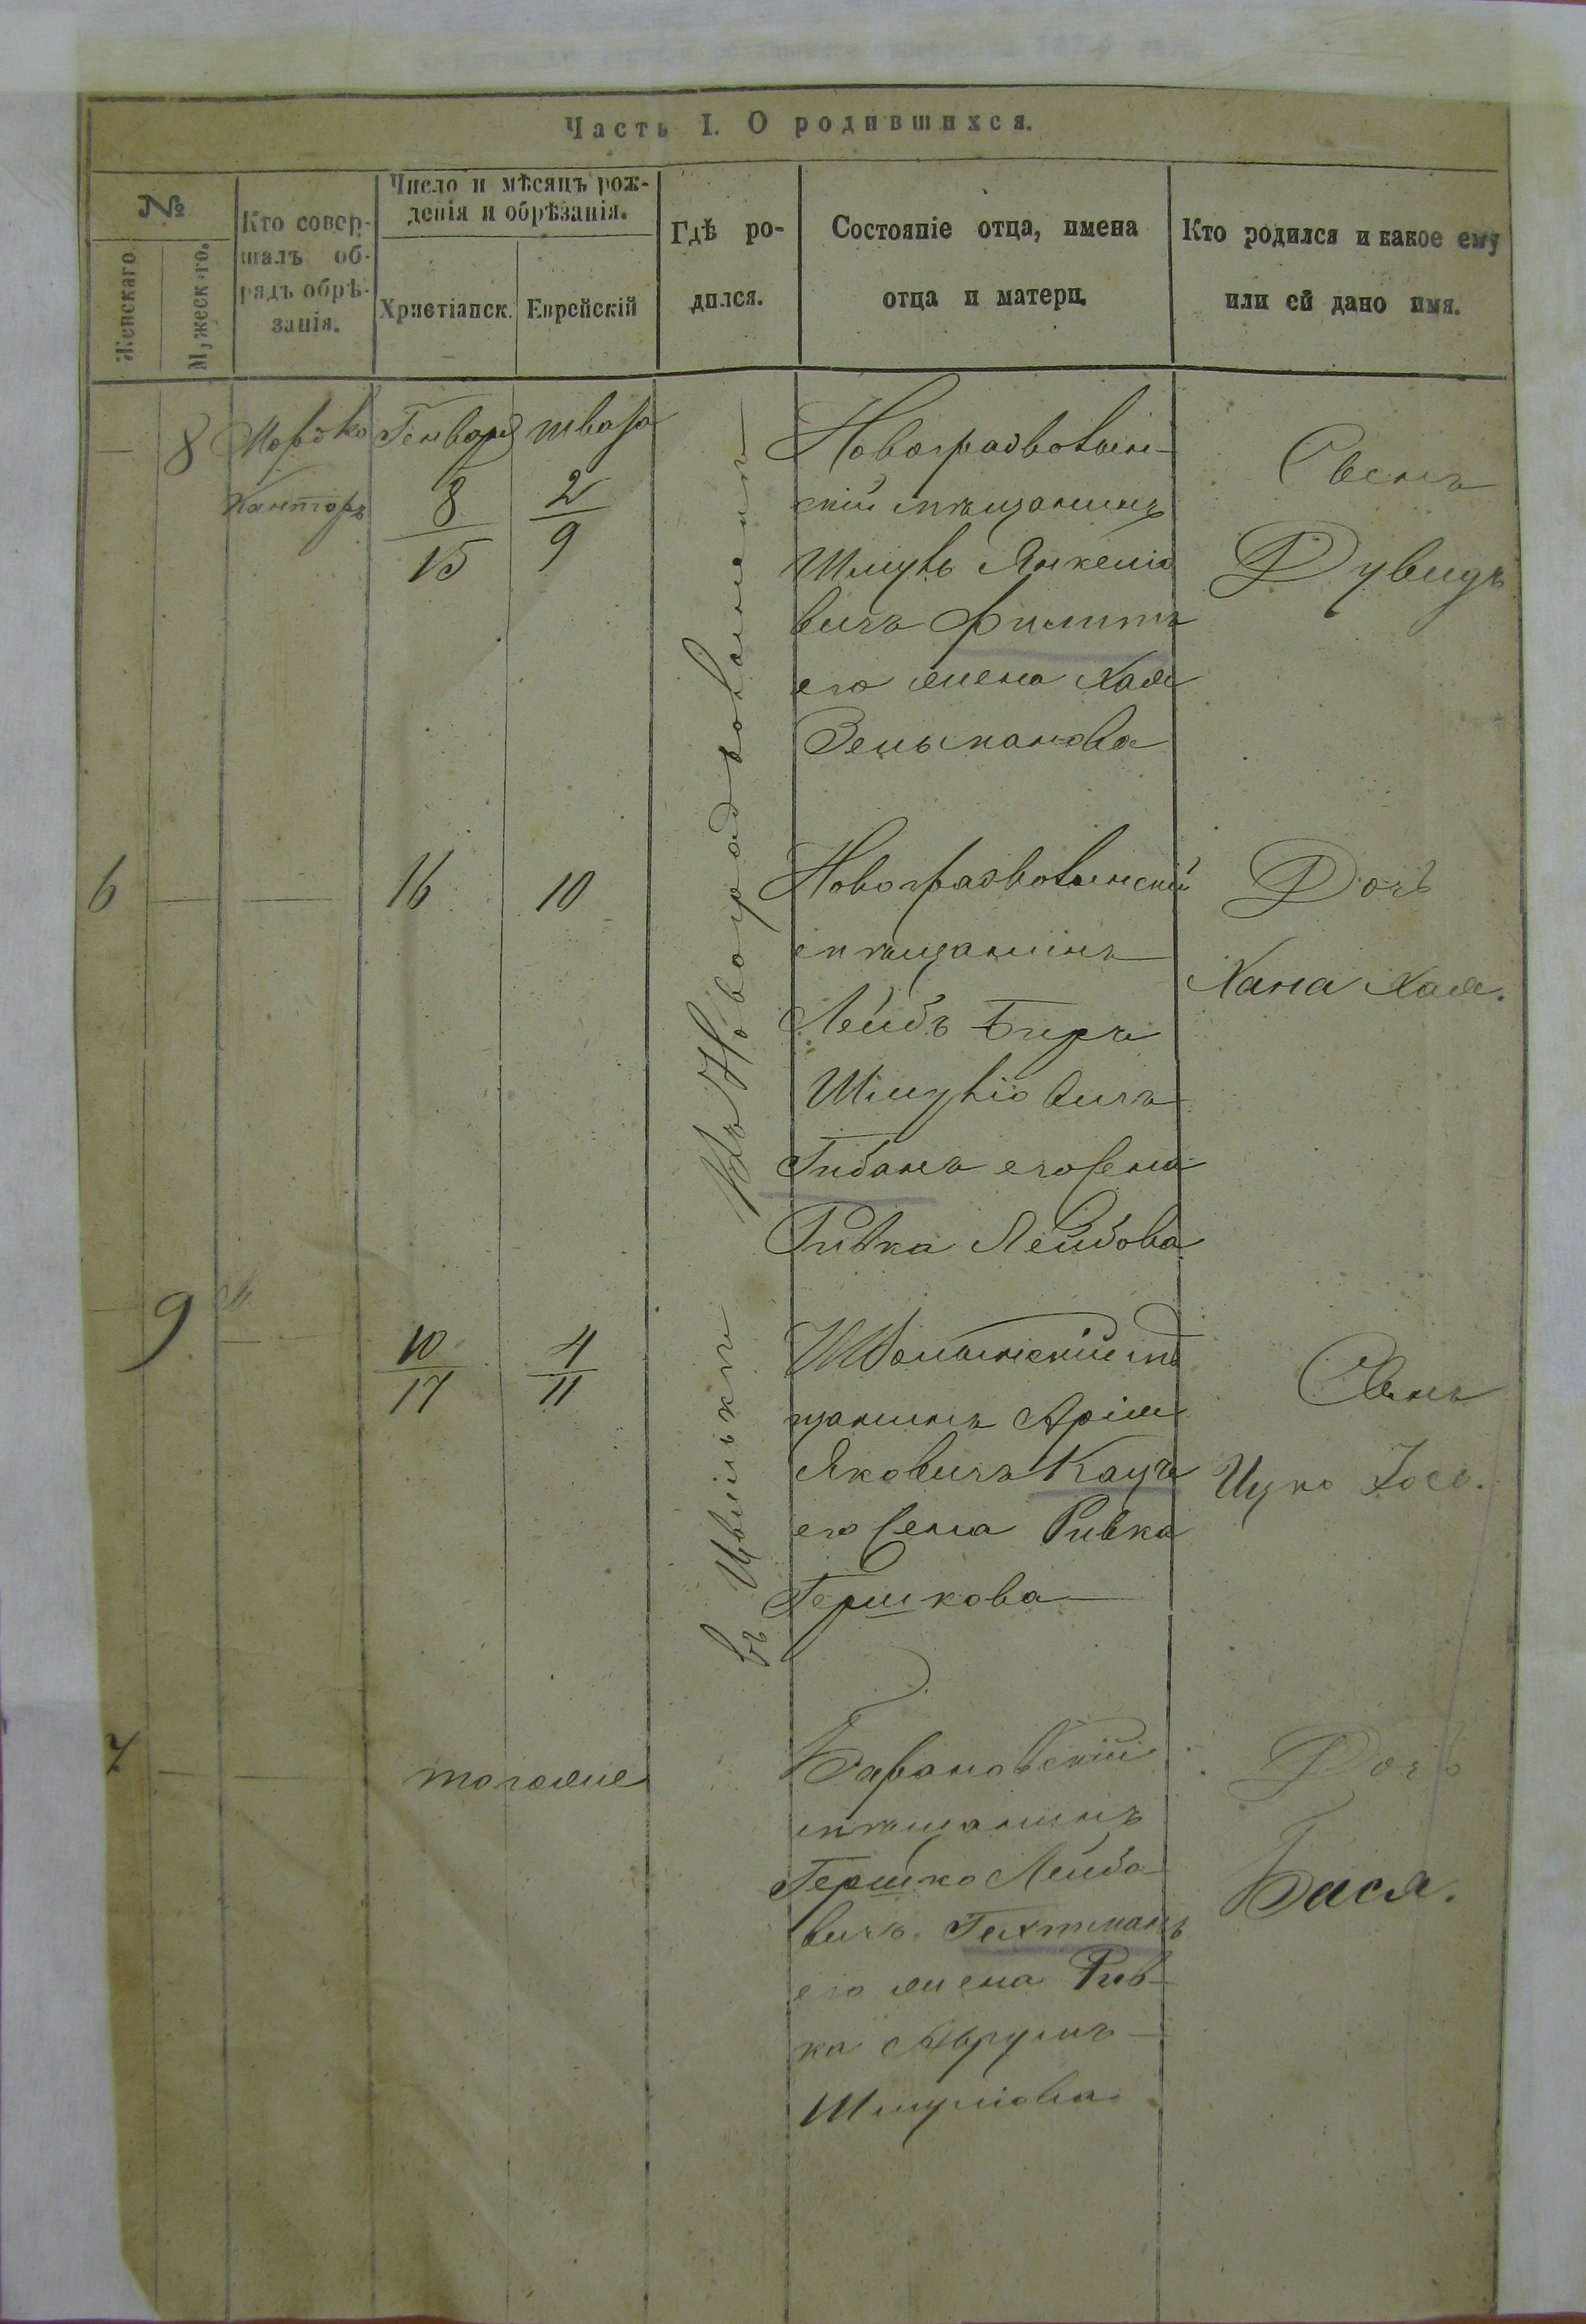 Часть I. О родившихся.
№
Женскаго.
Мужеск-го.
Кто совер-
шалъ об-
рядъ обрѣ-
занія.
Число и мѣсяцъ рож-
денія и обрѣзанія.
Христіанск.
Еврейскій
Гдѣ ро-
дился.
Состояніе отца, имена
отца и матери.
Кто родился и какое ему
или ей дано имя.
8
Мордко
Канторъ
Генваря
8
15
2
9
Новоградволын-
скій мѣщанинъ
Шмуль Янкеліо
вичъ
его жена Хая
Зельманова
Сынъ
Дувидъ
Въ Новоградволынскѣ
6
16
10
Новоградволынскій
мѣщанинъ
Лейбъ Беръ
Шмуліовичъ
его жена
Ривка Лейбова
Дочь
Хана Хая.
9
10
17
4
11
мѣ
щанинъ Арія
Яковичъ Кацъ
его жена Ривка
Гершкова
Сынъ
Ицко Іос.
въ
7
тогоже
Барановскій
мѣщанинъ
Гершко Лейбо
вичъ Гехтманъ
его жена Рив-
ка Аврумъ
Шмулова
Дочь
Бася.